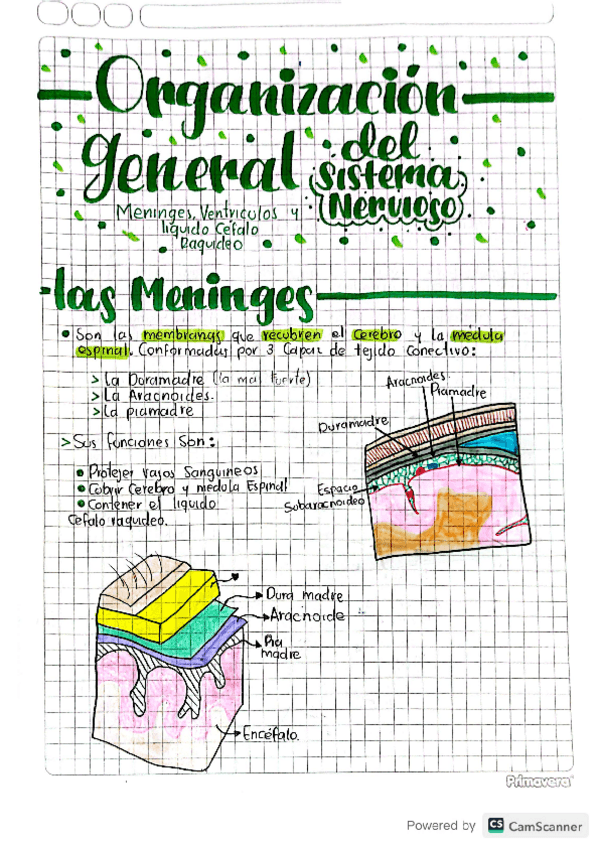 Organización
general del
Sistema
Nervioso
Meninges, Ventriculos y
liquido Cefalo
Raquideo
las Meninges
Son las membranas que recubren el cerebro y la medula
espinal. Conformadas por 3 Capas de tejido conectivo:
> La Duramadre (la mas fuerte)
> La Aracnoides.
> La piamadre
> Sus funciones son:
Protejer vasos Sanguineos
Cubrir Cerebro y medola Espinal
Contener el liquido
Cefalo raquideo.
Aracnoides
Piamadre
Duramadre
Espacio
Subaracnoideo
Dura madre
Aracnoide
Pia
madre
Encéfalo.
Primavera
Powered by CS CamScanner